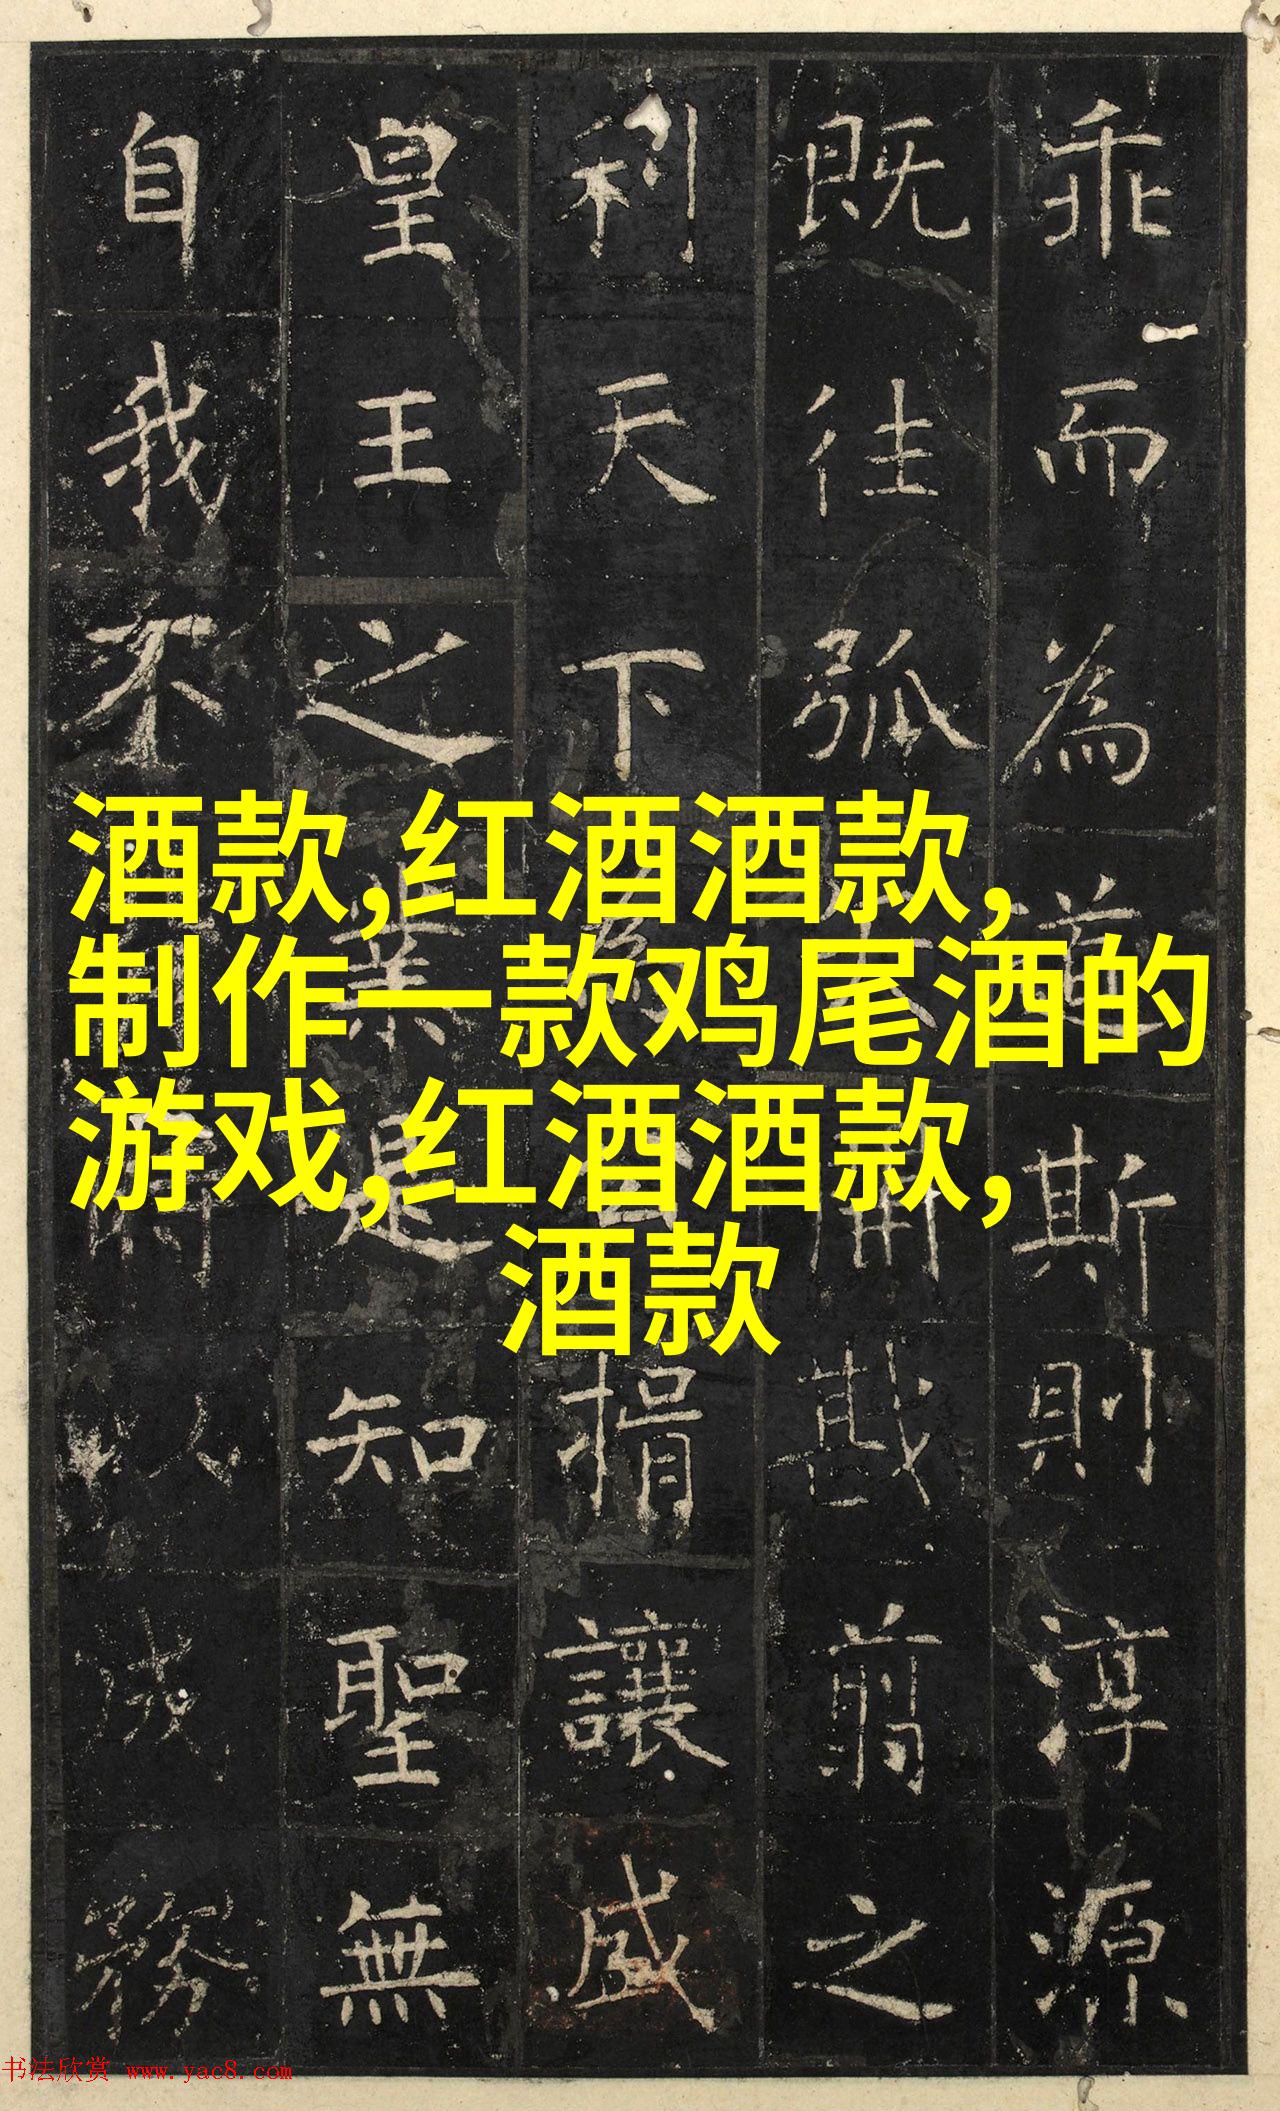 酒款,红酒酒款,
制作一款鸡尾酒的
游戏,红酒酒款,
酒款
乖而為道斯則淳源
既往弧開戡翦之
利天下為揖讓盛
皇王之業是知聖無
自我不時以成務
书法欣赏 www.yac8.com